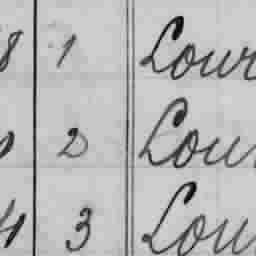 8 1 Lour
2 Lou
41 3 Lou